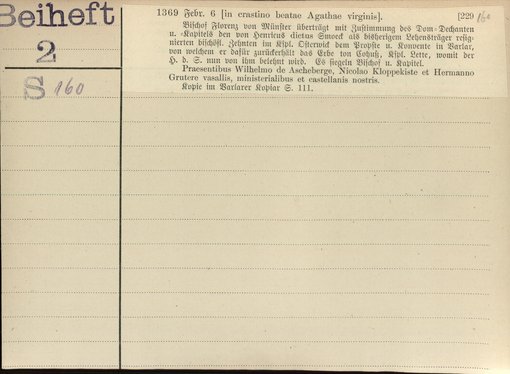 Beiheft
2
S 160
1369 Febr. 6 [in crastino beatae Agathae virginis]. [229 160
Bischof Florenz von Münster überträgt mit Zustimmung des Dom-Dechanten
u. -Kapitels den von Henricus dictus Smock als bisherigem Lehensträger resig-
nierten bischöfl. Zehnten im Kspl. Osterwick dem Propste u. Konvente in Varlar,
von welchem er dafür zurückerhält das Erbe ton Cohus, Kspl. Lette, womit der
H. d. S. nun von ihm belehnt wird. Es siegeln Bischof u. Kapitel.
Praesentibus Wilhelmo de Ascheberge, Nicolao Kloppekiste et Hermanno
Grutere vasallis, ministerialibus et castellanis nostris.
Kopie im Varlarer Kopiar S. 111.